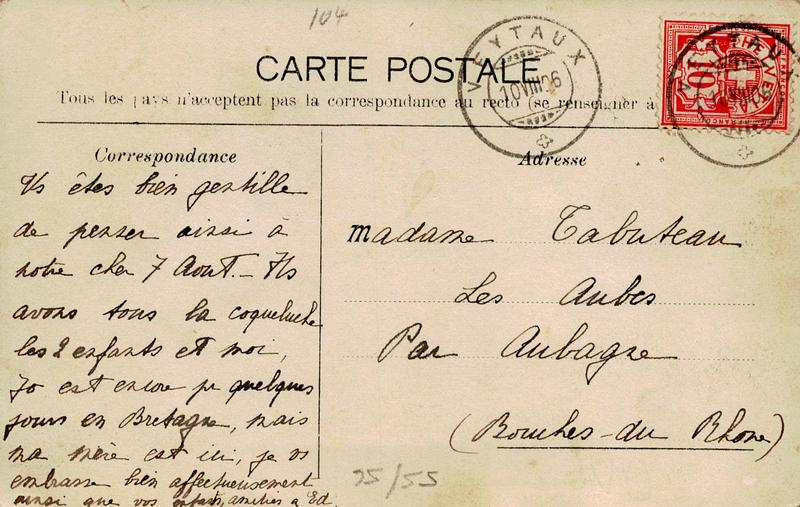 104
CARTE POSTALE
Tous les pays n'acceptent pas la correspondance au recto (se renseigner à
VEYTAUX
10 VIII 06
10
FRANCO
Correspondance
Vs êtes bien gentille
de penser ainsi à
notre cher 7 Août. — Ns
avons tous la coqueluche
les 2 enfants et moi,
Jo est encore pr quelques
jours en Bretagne, mais
ma mère est ici, je vs
embrasse bien affectueusement
ainsi que vos enfants, amitiés à Ed.
Adresse
Madame Tabuteau
Les Aubes
Par Aubagne
(Bouches-du Rhone)
35/55